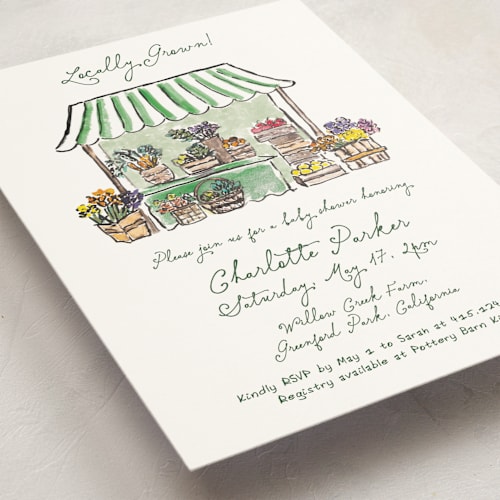 Locally Grown!
Please join us for a baby shower honoring
Charlotte Parker
Saturday, May 17. 2pm
Willow Creek Farm,
Greenford Park, California
Kindly RSVP by May 1 to Sarah at 415.124
Registry available at Pottery Barn K